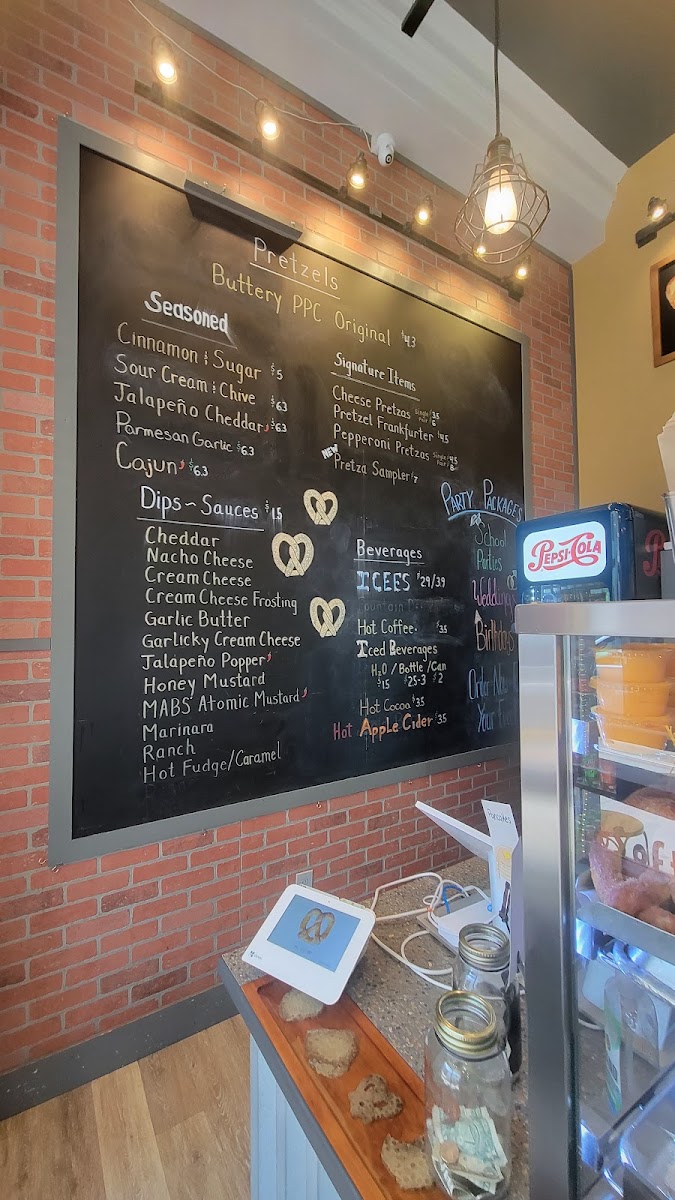 Pretzels
Buttery PPC Original $4.3
Seasoned
Cinnamon & Sugar $5
Sour Cream & Chive $6.3
Jalapeño Cheddar $6.3
Parmesan Garlic $6.3
Cajun $6.3
Dips~Sauces $1.5
Cheddar
Nacho Cheese
Cream Cheese
Cream Cheese Frosting
Garlic Butter
Garlicky Cream Cheese
Jalapeño Popper
Honey Mustard
MABS Atomic Mustard
Marinara
Ranch
Hot Fudge/Caramel
Signature Items
Cheese Pretzas
Pretzel Frankfurter
Pepperoni Pretzas
NEW
Pretza Sampler
Beverages
ICEES $29/39
Fountain
Hot Coffee $3.5
Iced Beverages
H2O / Bottle / Can
$15 $25-3 $2
Hot Cocoa $3.5
Hot Apple Cider $3.5
Party Packages
School
Parties
Weddings
Birthdays
Order Now
Your
PEPSI-COLA